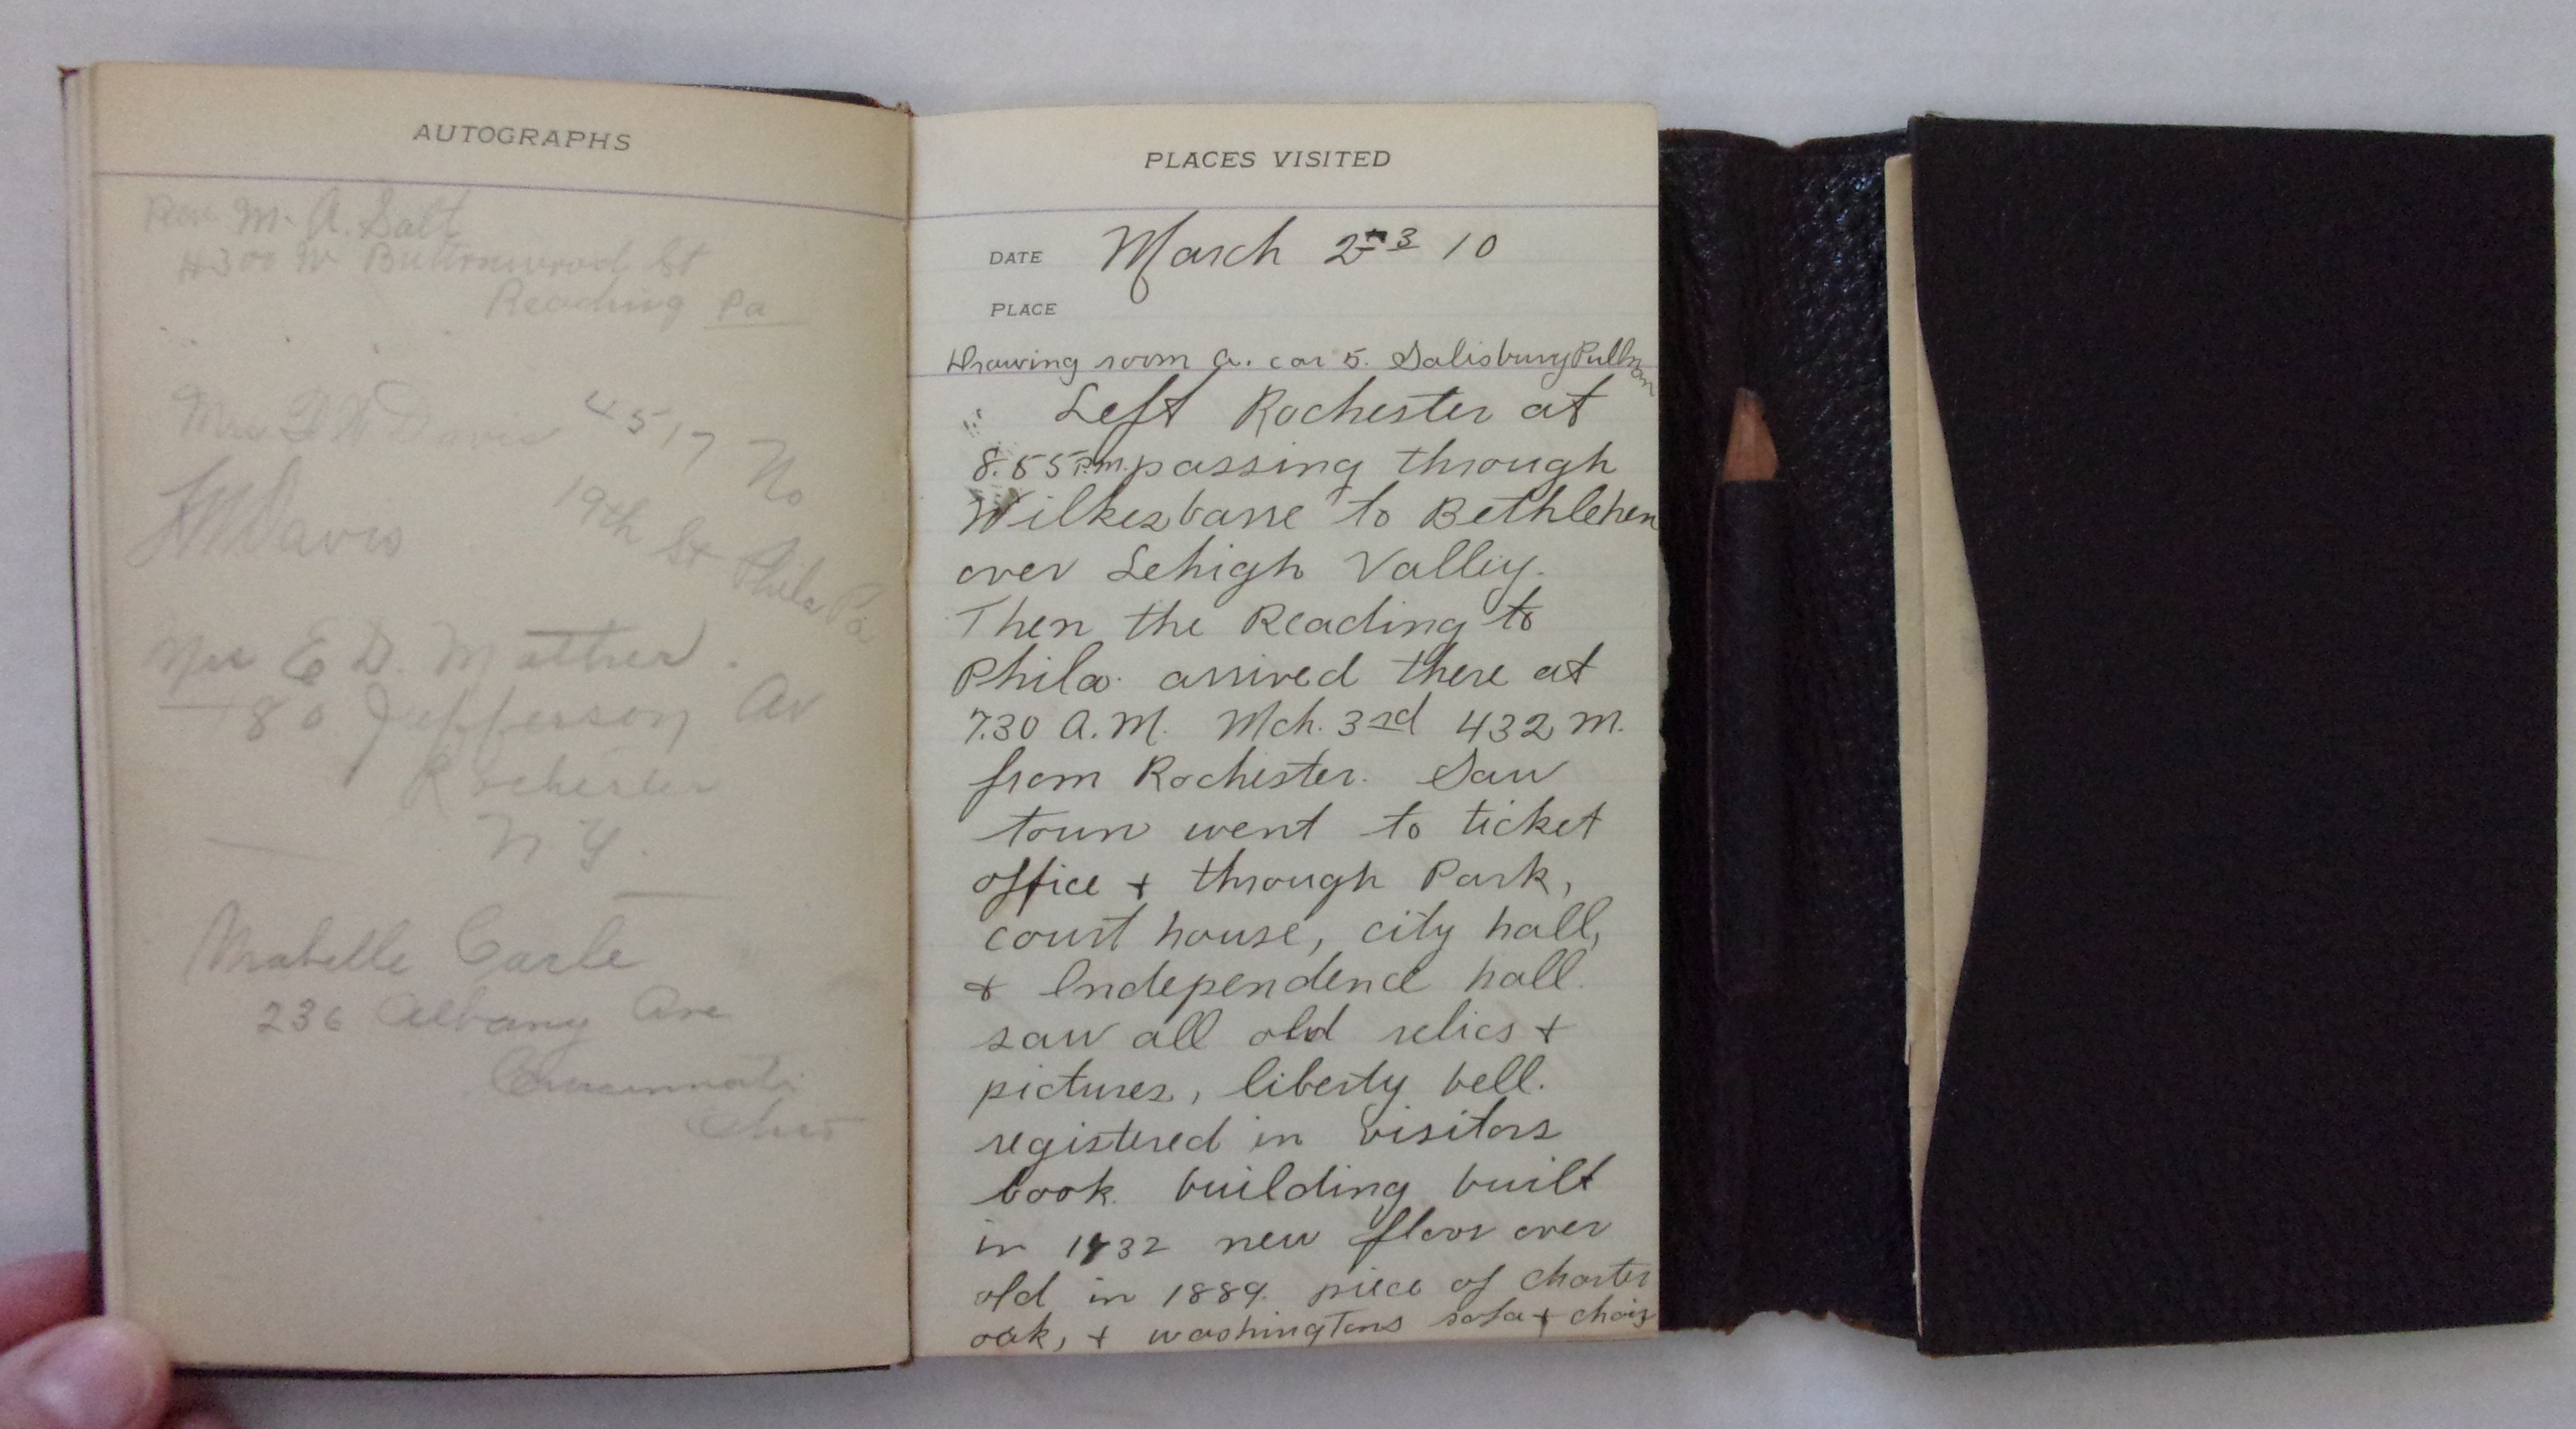 AUTOGRAPHS
Rev M. A. Salt
#300 W Buttonwood St
Reading Pa
Mrs D W Davis 4517 No
19th St Phila Pa
Davis
Mrs E D. Mather.
780 Jefferson Av
Rochester
N Y.
Mabelle Carle
236 Albany Ave
Cincinnati
Ohio
PLACES VISITED
DATE March 2 3 10
PLACE
Drawing room A. car 5. Salisbury Pullman
Left Rochester at
8.55 P.M. passing through
Wilkesbarre to Bethlehem
over Lehigh Valley.
Then the Reading to
Phila. arrived there at
7.30 A.M. Mch. 3rd 432 m.
from Rochester. Saw
town went to ticket
office + through Park,
court house, city hall,
+ Independence hall.
saw all old relics +
pictures, liberty bell.
registered in visitors
book. building built
in 1732 new floor over
old in 1889. piece of charter
oak, + washingtons sofa + chair